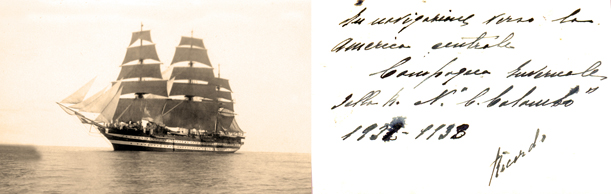 In navigazione verso la
America centrale
Campagna Invernale
della R. N. "C. Colombo"
Ricordo